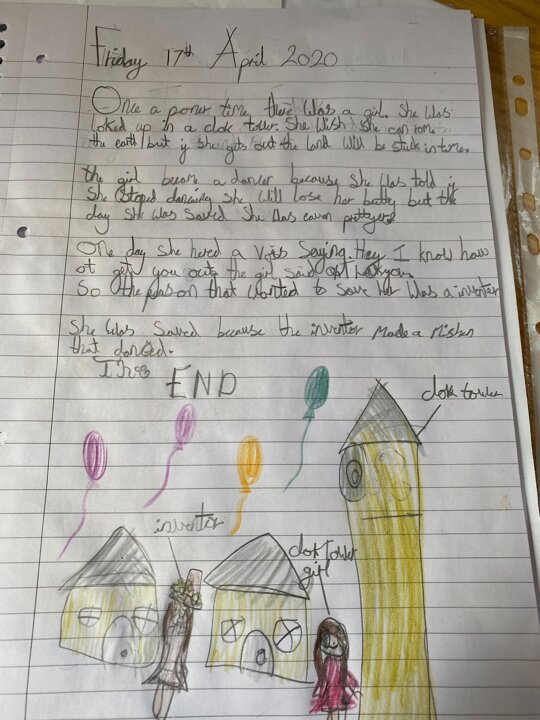 Friday 17th April 2020
Once a poner time, there was a girl. She was
loked up in a clok tower. She wish she can rome
the earth but if she gets out the land will be stuk in time.
the girl becam a dancer because she was told if
she stoped dancing she will lose her butty but the
day she was saved she was eaven prettyer
One day she hered a vois saying. Hey I know how
ot get you out. the girl said
So the person that wanted to save her was a inventer
She was saved because the inventor made a mishen
that danced.
The END
clok tower
inventor
clok tower
girl